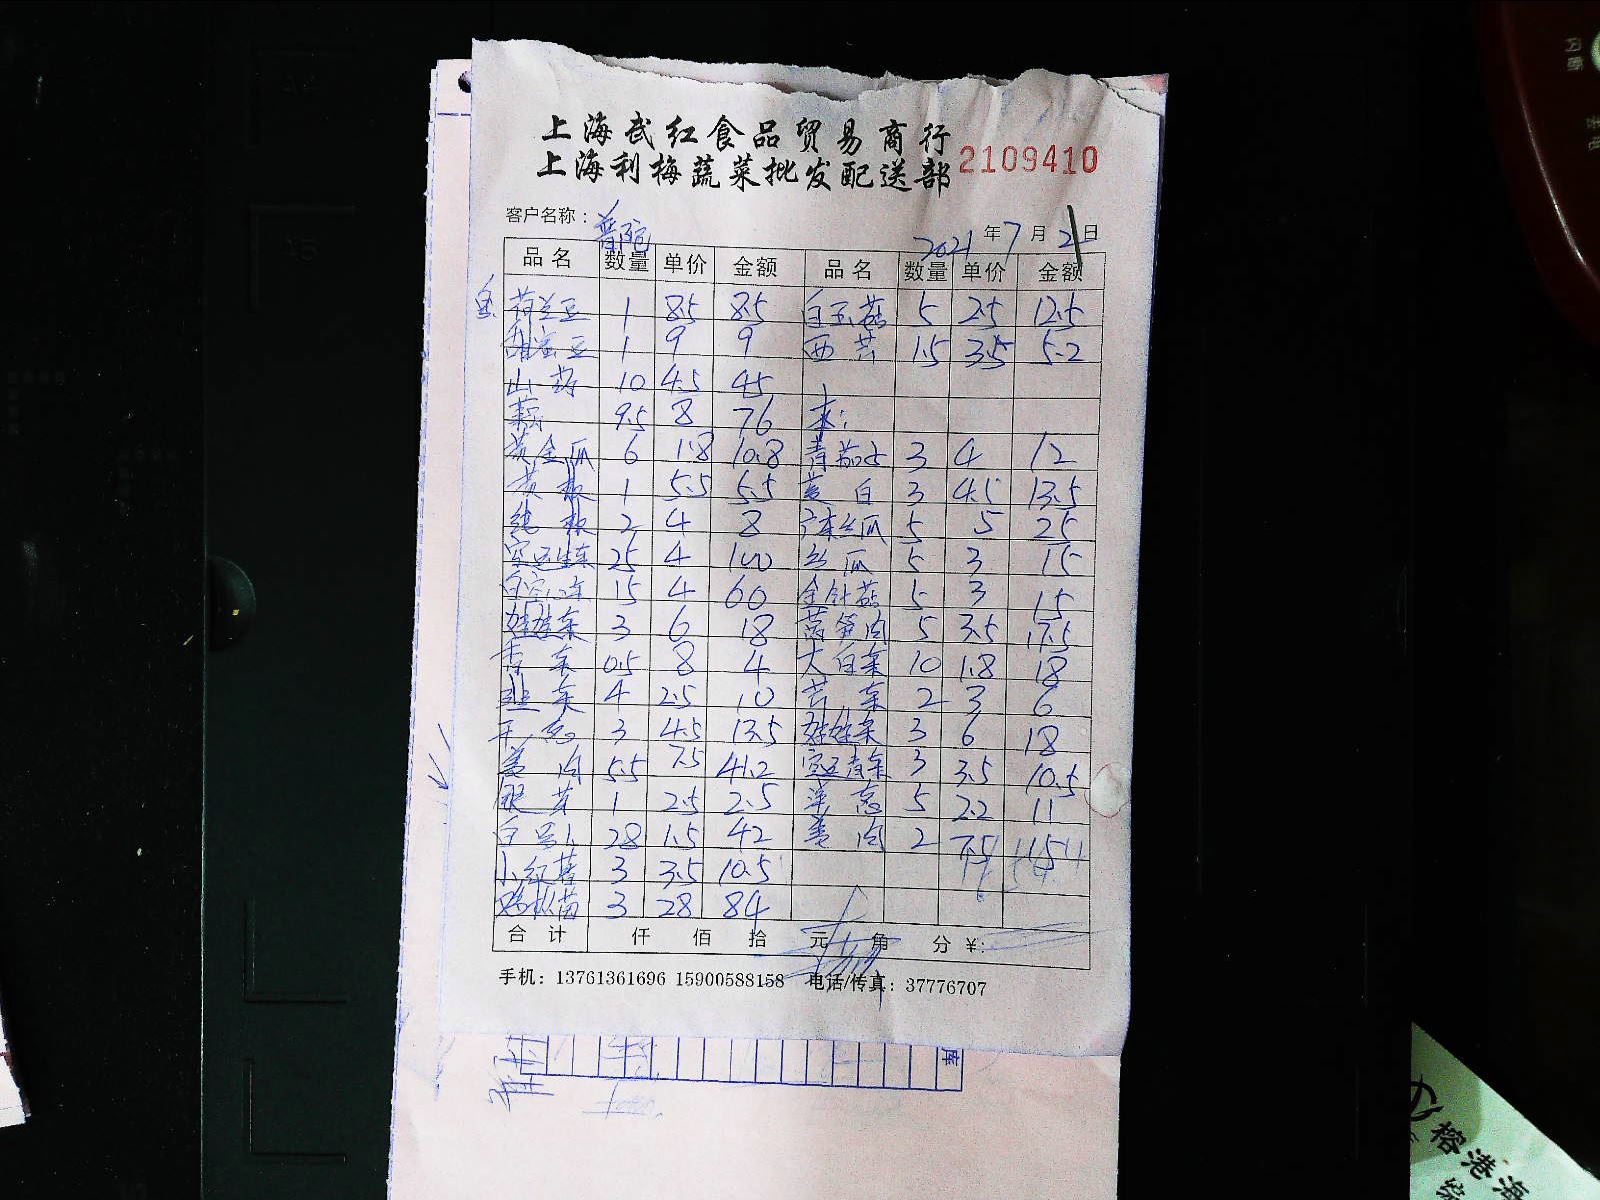 上海武红食品贸易商行
上海利梅蔬菜批发配送部 2109410
客户名称: 2021年7月21日
品名 数量 单价 金额 品名 数量 单价 金额
荷兰豆 1 8.5 8.5 白玉菇 5 2.5 12.5
甜蜜豆 1 9 9 西芹 1.5 3.5 5.2
山药 10 4.5 45
藕 9.5 8 76
黄金瓜 6 1.8 10.8 青茄子 3 4 12
黄椒 1 5.5 5.5 茭白 3 4.5 13.5
2 4 8 丝瓜 5 5 25
25 4 100 丝瓜 5 3 15
15 4 60 金针菇 5 3 15
娃娃菜 3 6 18 莴笋肉 5 3.5 17.5
0.5 8 4 大白菜 10 1.8 18
韭菜 4 2.5 10 苦菜 2 3 6
3 4.5 13.5 娃娃菜 3 6 18
姜肉 5.5 7.5 41.2 3 3.5 10.5
银芽 1 2.5 2.5 洋葱 5 2.2 11
28 1.5 42 姜肉 2 7.5
小红薯 3 3.5 10.5
3 28 84
合计 仟 佰 拾 元 角 分 ¥:
手机: 13761361696 15900588158 电话/传真: 37776707
库
榕港海